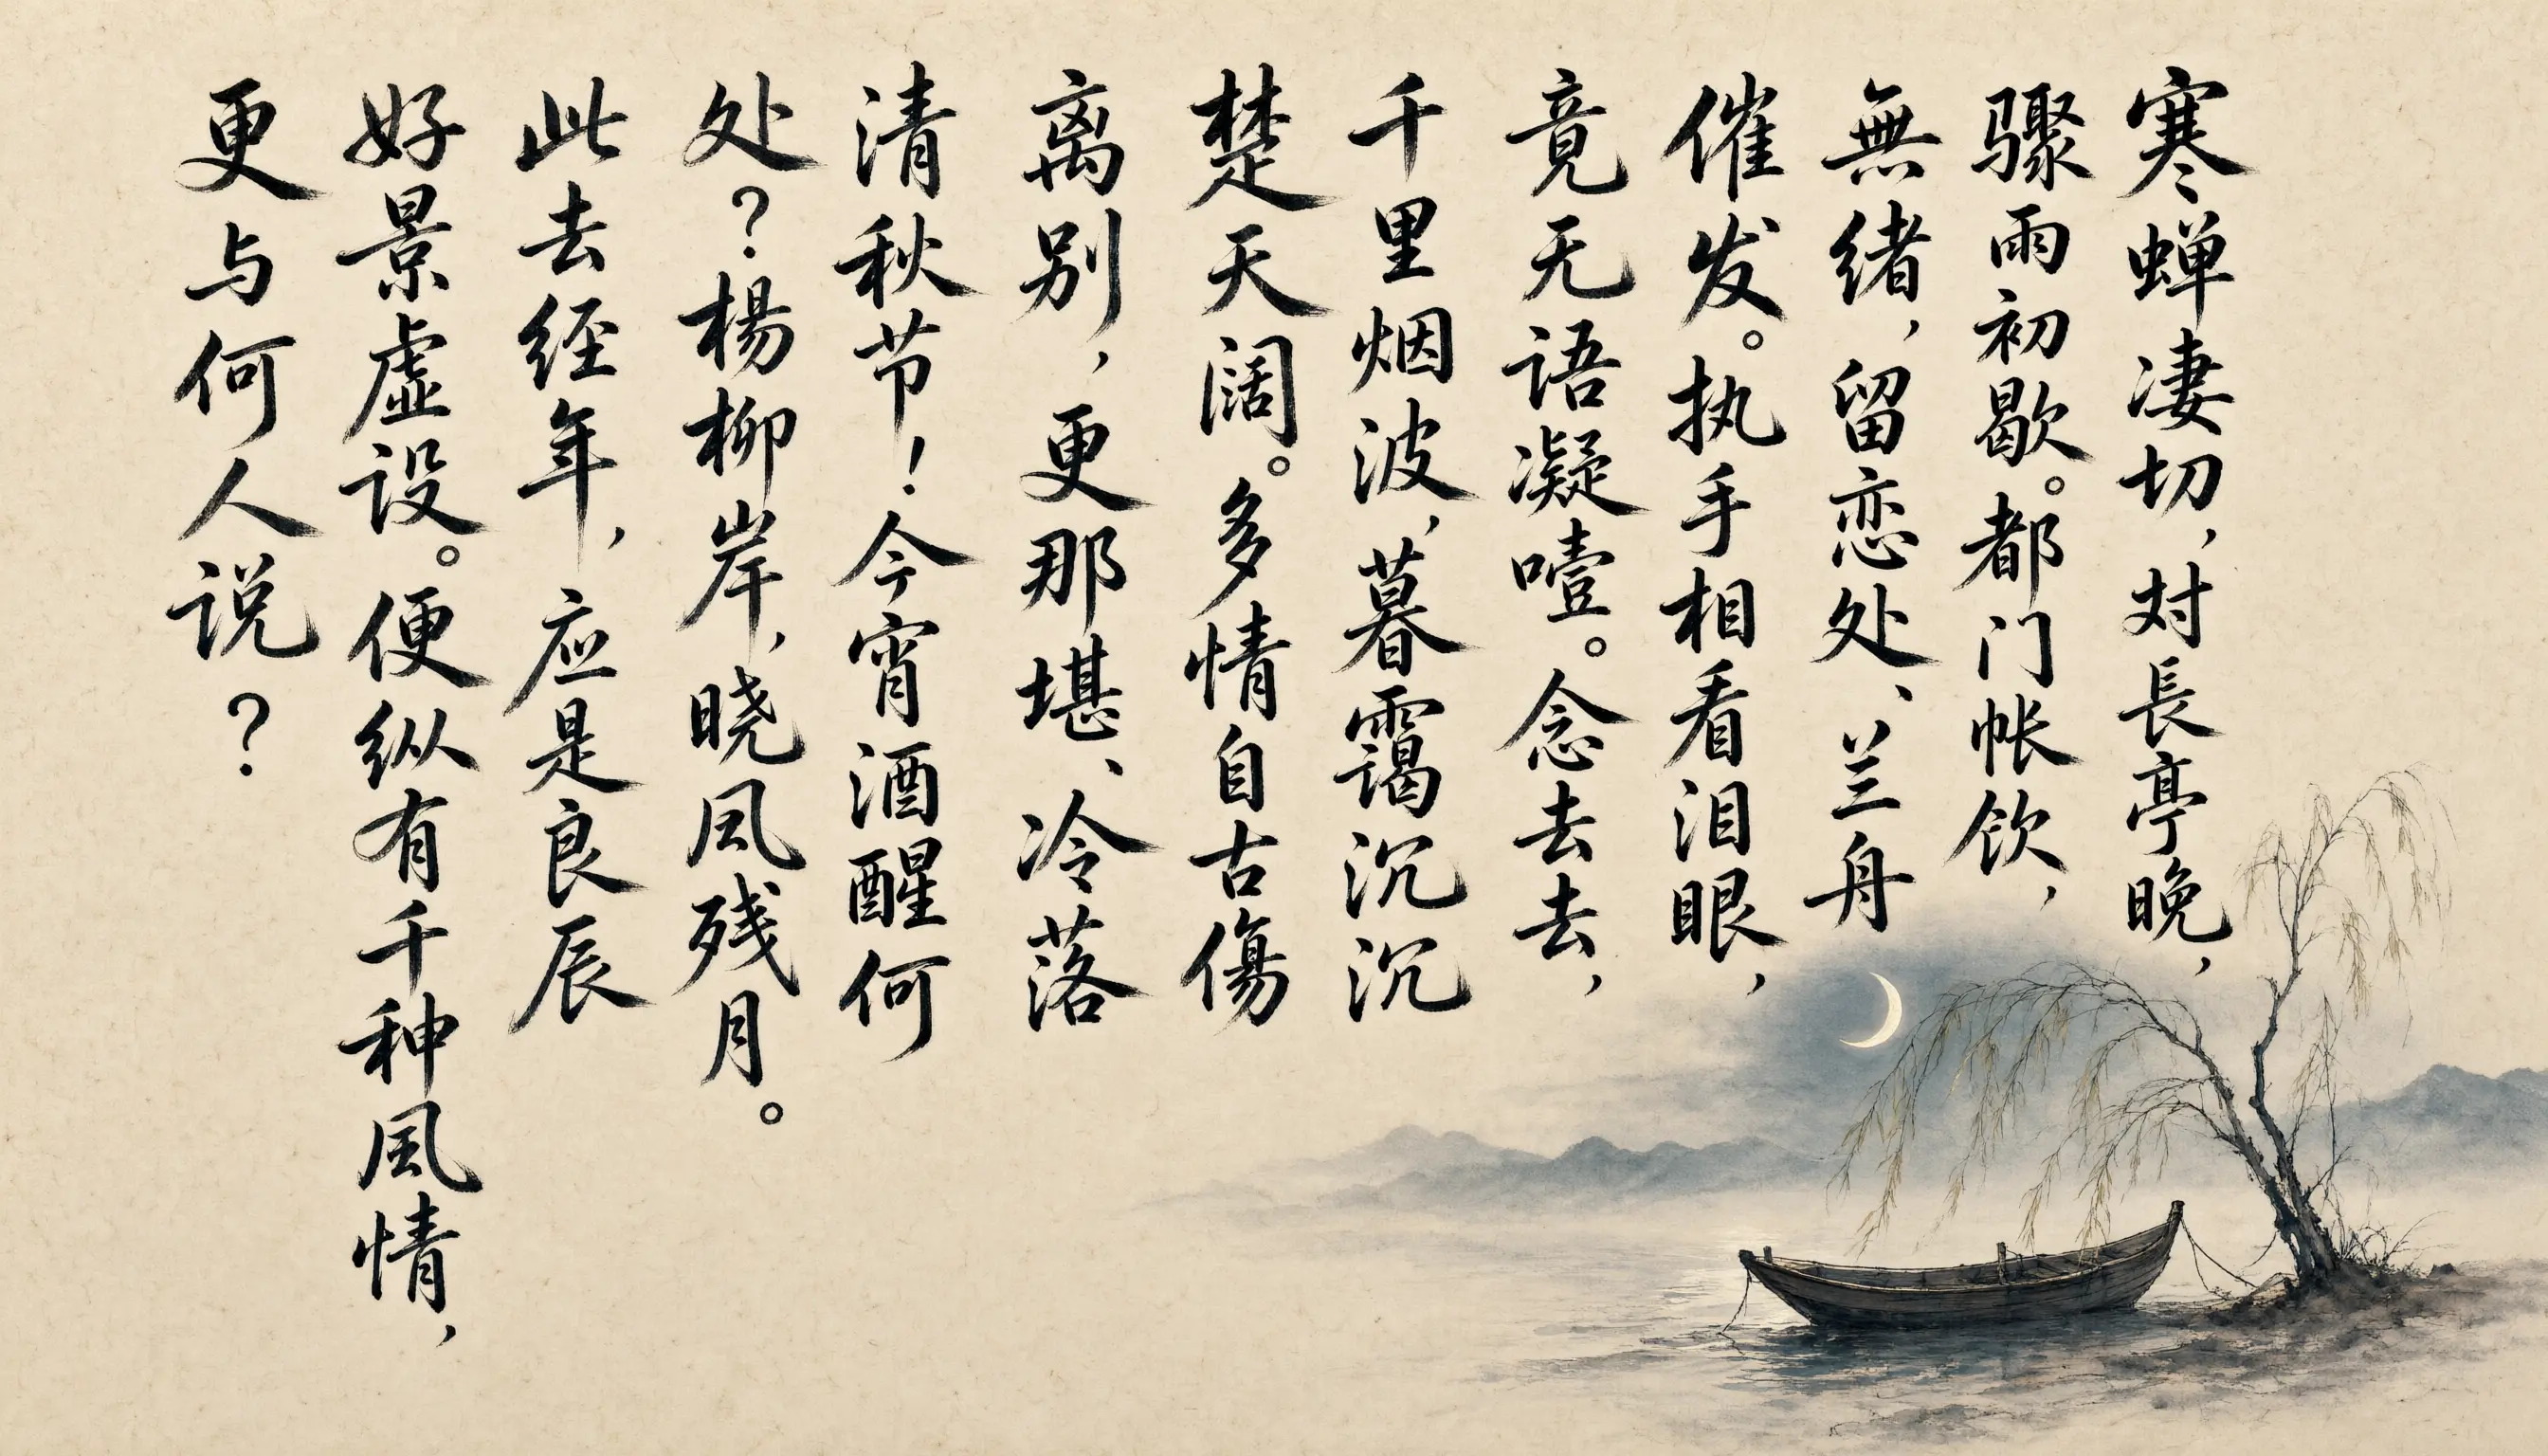 寒蝉凄切，对長亭晚，
骤雨初歇。都门帐饮，
無绪，留恋处、兰舟
催发。执手相看泪眼，
竟无语凝噎。念去去，
千里烟波，暮霭沉沉
楚天阔。多情自古傷
离别，更那堪、冷落
清秋节！今宵酒醒何
处？楊柳岸，晓风残月。
此去经年，应是良辰
好景虚设。便纵有千种风情，
更与何人说？